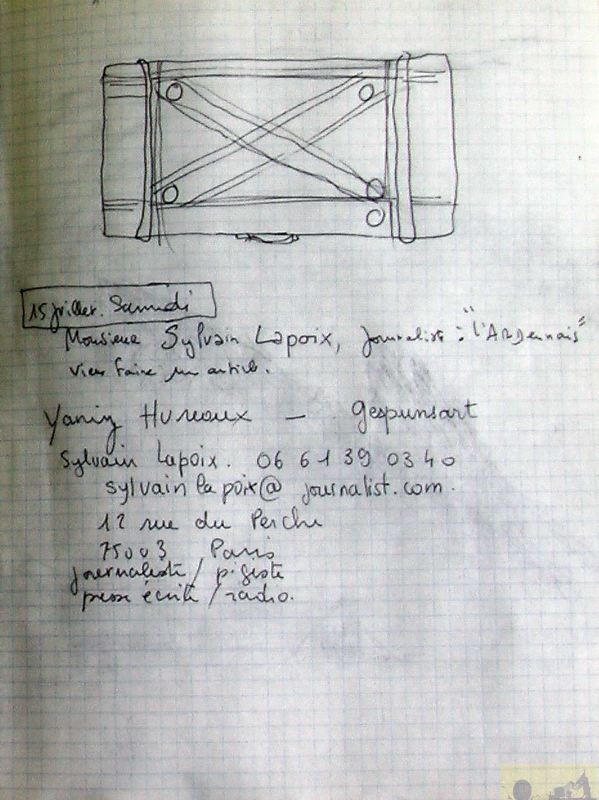 15 juillet. Samedi
Monsieur Sylvain Lapoix, journaliste : "l'Ardennais"
vient faire un article.
Yanny Hureaux — Gespunsart
Sylvain Lapoix. 06 61 39 03 40
sylvain la poix@ journalist.com.
12 rue du Perche
75003 Paris
journaliste / pigiste
presse écrite / radio.